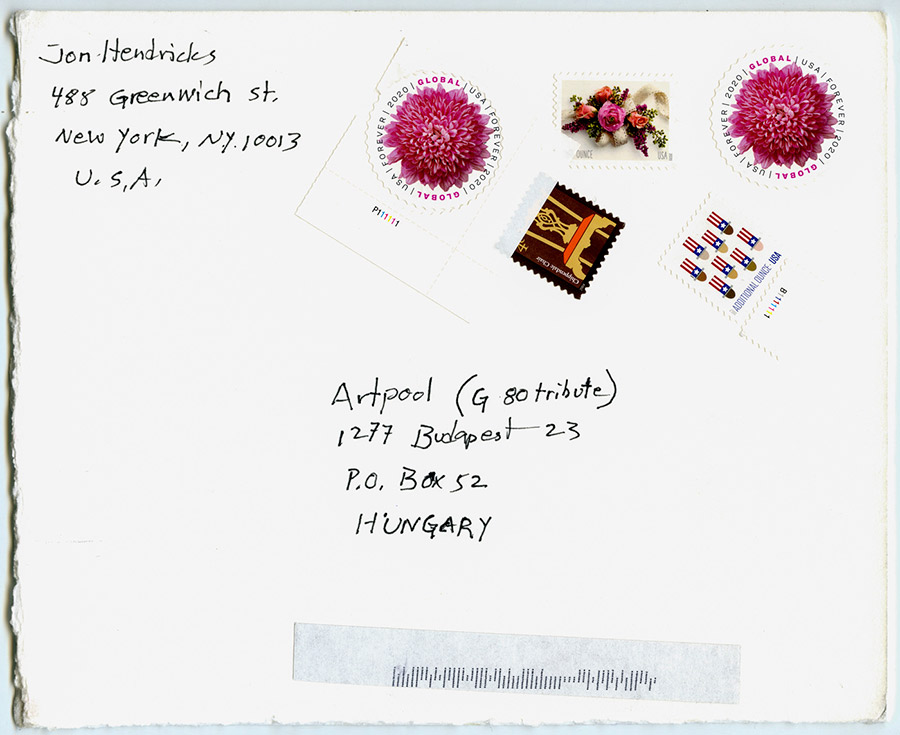 Jon Hendricks
488 Greenwich st.
New York, NY. 10013
U.S.A.
FOREVER | 2020 | GLOBAL | USA | FOREVER | 2020 | GLOBAL | USA |
P111111
OUNCE USA
FOREVER | 2020 | GLOBAL | USA | FOREVER | 2020 | GLOBAL | USA |
Chippendale Chair
ADDITIONAL OUNCE USA
B11111
Artpool (G 80 tribute)
1277 Budapest - 23
P.O. Box 52
HUNGARY